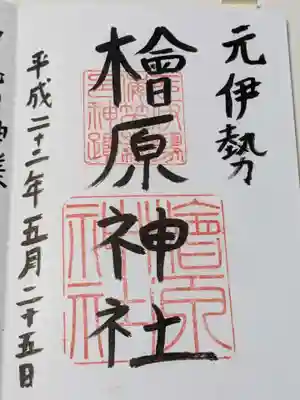 元伊勢
檜原神社
平成二十二年五月二十五日
檜原
神社